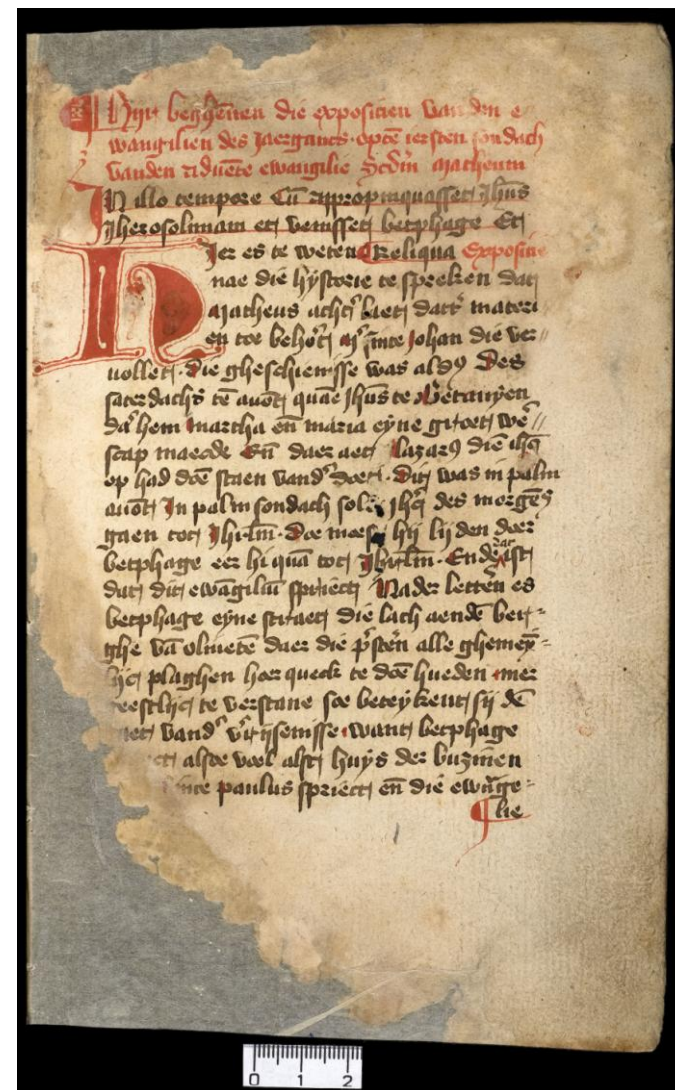 Hyr beghennen die exposicien van den e
wangilien des Jaergants. opte iersten sondach
vanden aduēte ewangilie Scdm matheum
In illo tempore Cū appropinquasset Jhūs
Jherosolimam et venisset betphage Et
Hier es te weten Reliqua Expositie
nae die hystorie te spreken dat
Matheus acht' liet dat' materi
en toe behō't sinte Johan die ver
vollet. Die gheschienisse was aldus Des
saterdachs tē avōt quāe Jhūs te Betanyen
da' hem martha eñ maria eyne groet we'
scap maecde Eñ daer aet Lazarus die ihc
op had doē staen vand' doet. Dit was in palm
avōt In palm sondach solde ihc des morgēs
gaen tot Jhrlm. Doe moest hij lijden doer
betphage eer hi quā tot Jhrlm. Ende dar ist
dat dit ewāgiliū spriect Nader letten es
betphage eyne straet die lach aendē ber
ghe vā olivetē daer die p'sterē alle ghemey
plaghen hoer queck te doē hueden mer
eestlijc te verstane soe beteykent sij dē
vand' v'rijsenisse want betphage
alsoe voel als huys der buzinen
sinte paulus spriect eñ die ewāge
lie
0 1 2